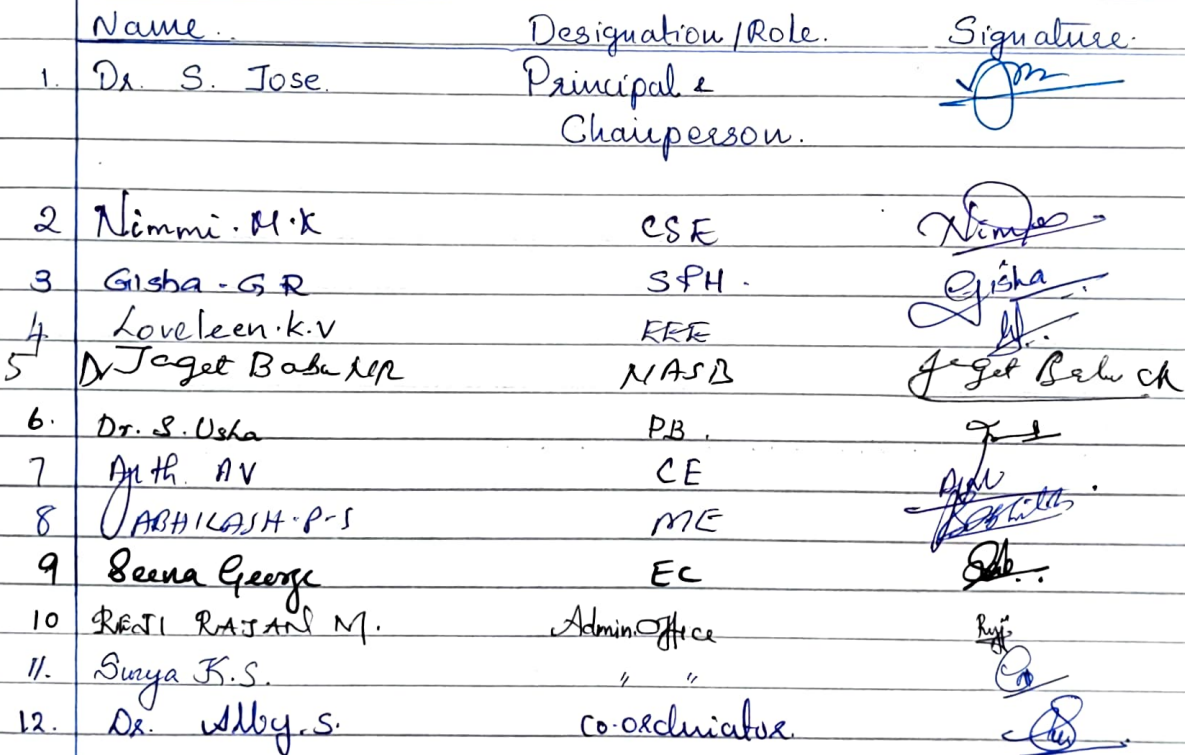 Name. Designation/Role. Signature.
1. Dr. S. Jose. Principal &
Chairperson.
2 Nimmi. M.K CSE
3 Gisha - G R SPH. Gisha
4 Loveleen.K.V EEE
5 Dr Jaget Babu NASB Jaget Babu
6. Dr. S. Usha PB.
7 Ajith. AV CE
8 ABHILASH.P-S ME
9 Seena George EC
10 REJI RAJAN M. Admin.Office Reji
11. Surya K.S. " "
12. Dr. Alby.S. Co-ordinator